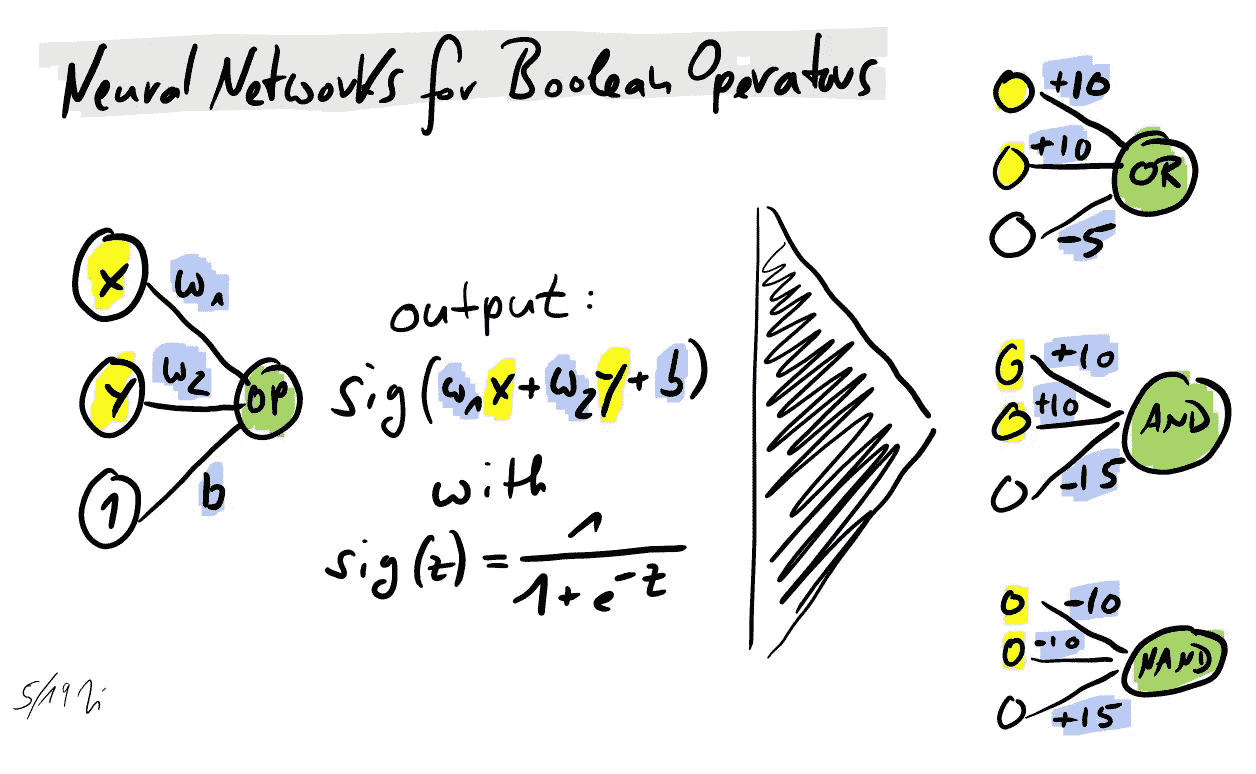 Neural Networks for Boolean Operators
x
w₁
y
w₂
1
b
OP
output:
sig(w₁x+w₂y+b)
with
sig(z) = 1/(1+e^-z)
+10
+10
-5
OR
+10
+10
-15
AND
-10
-10
+15
NAND
5/19